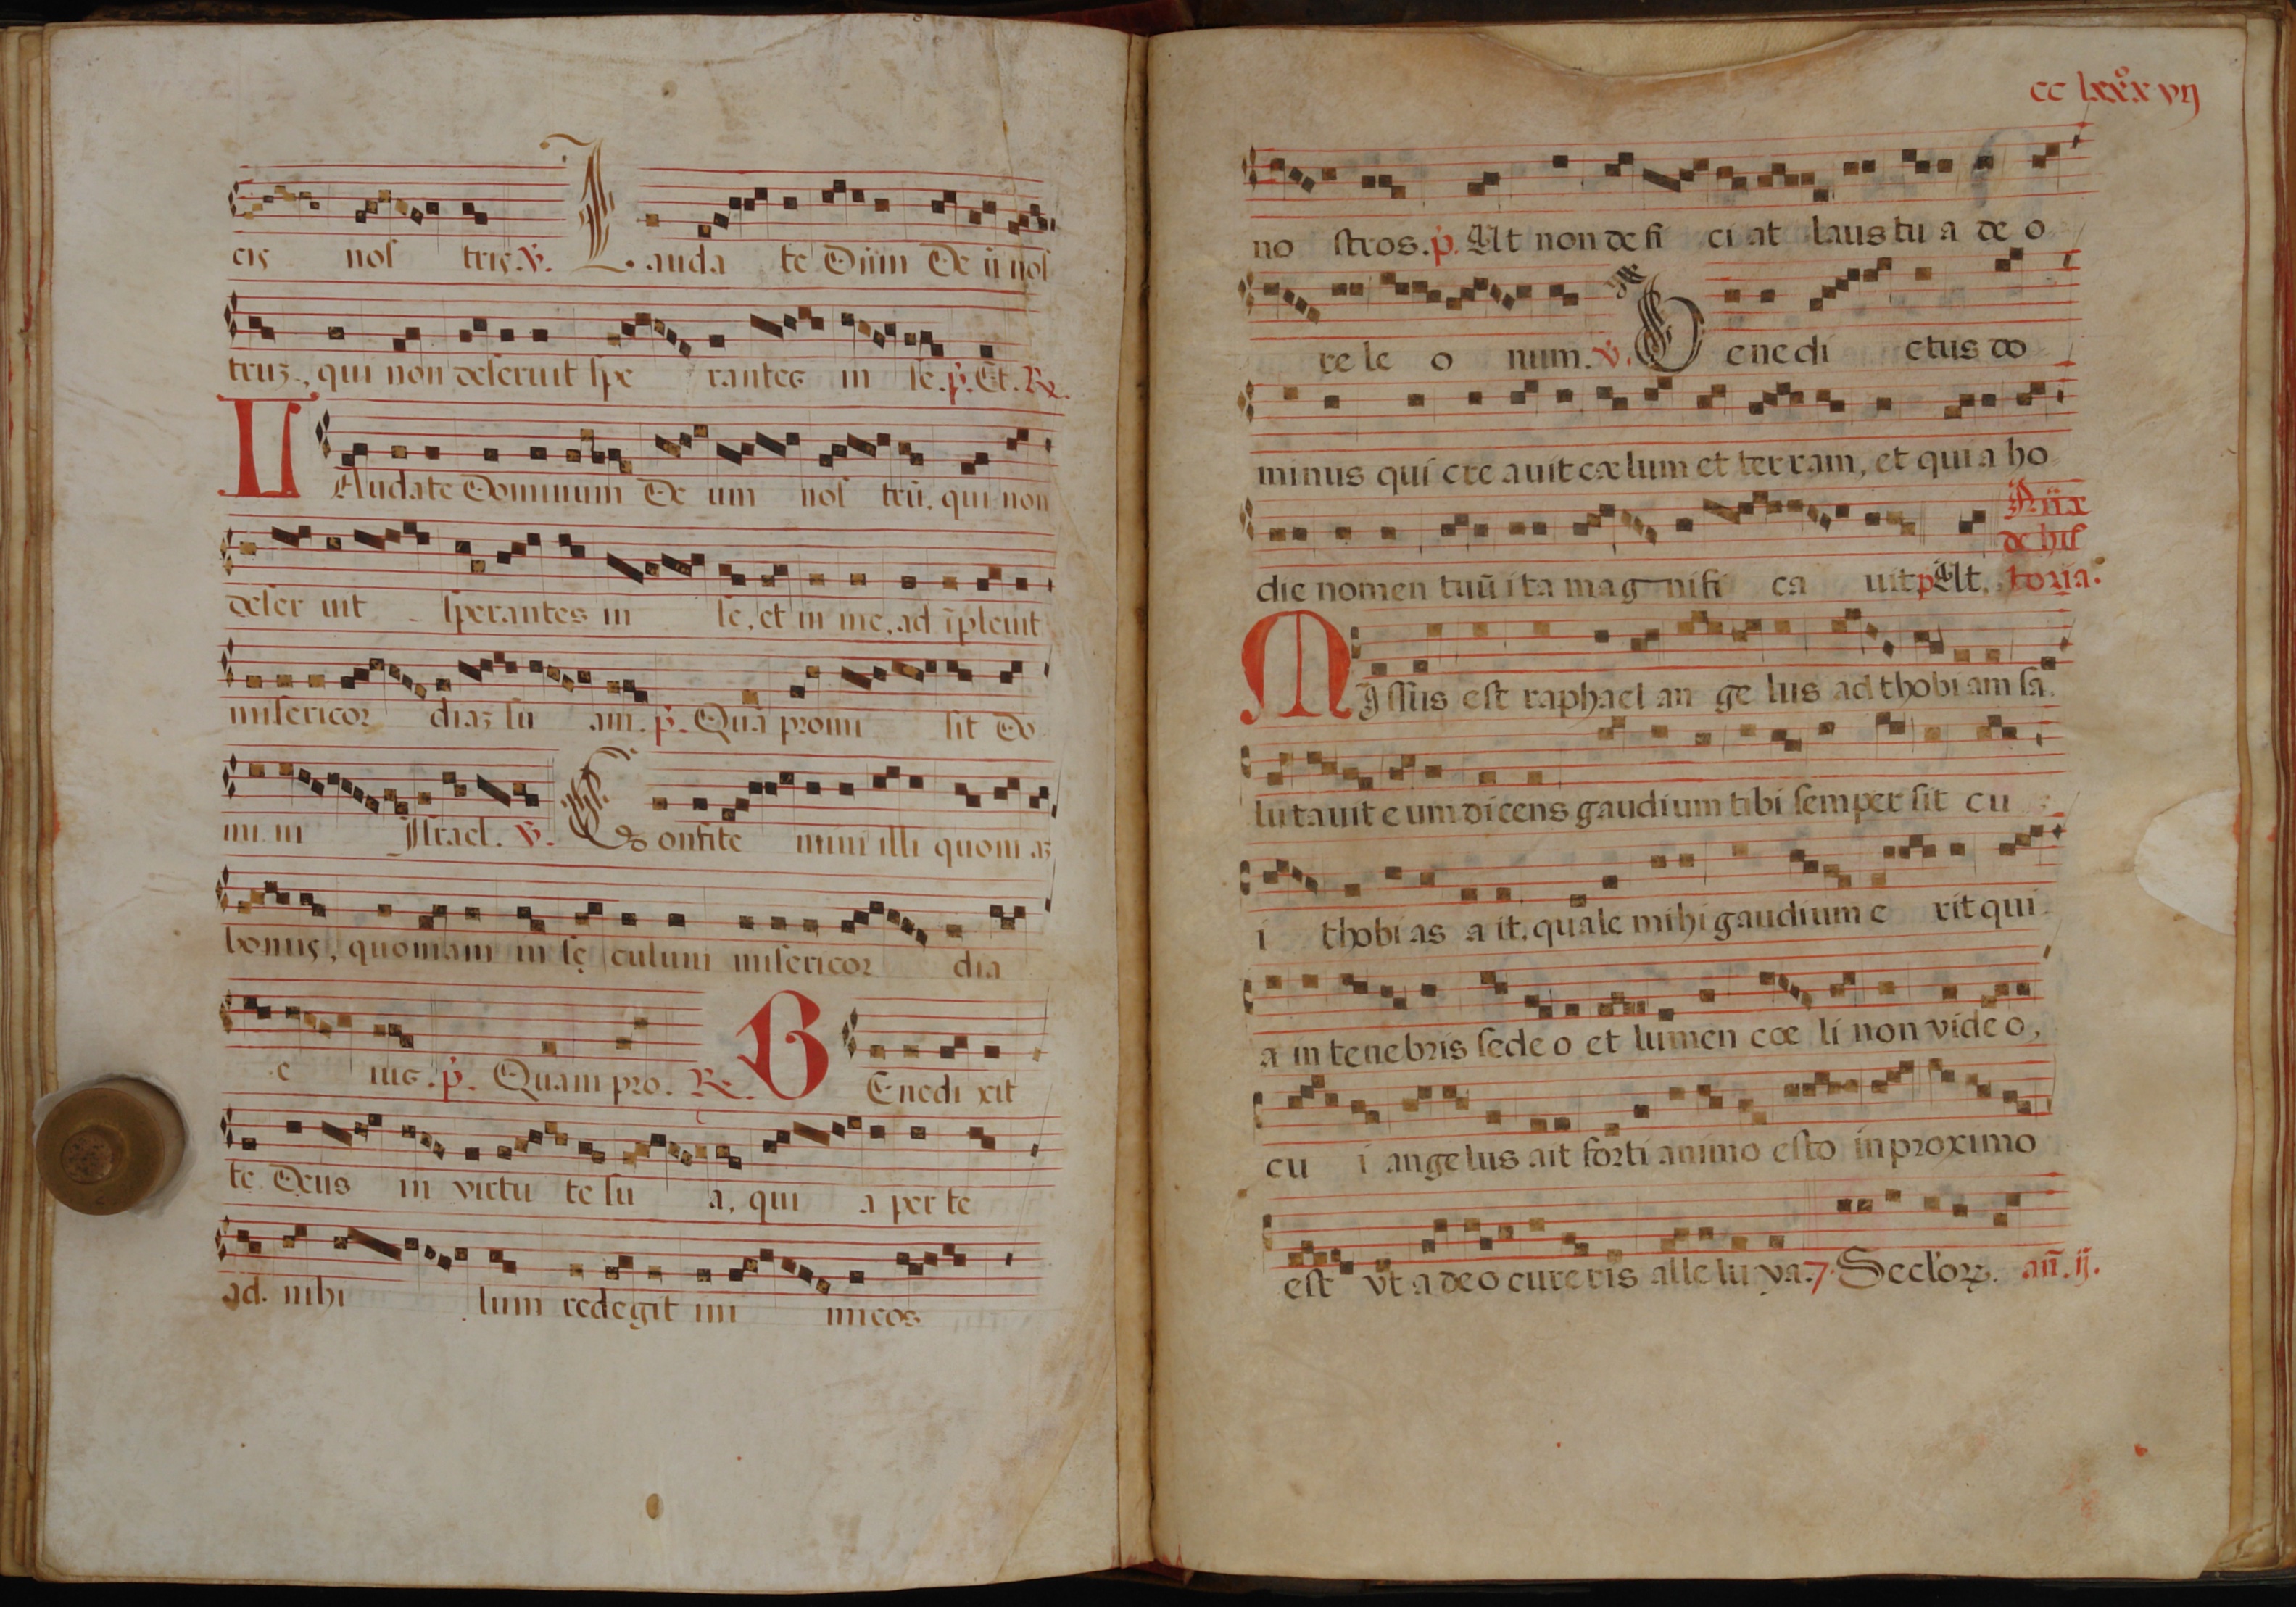 cis nos tris. v. Lauda te Dñm De ũ nos
truz, qui non deseruit spe rantes in se. p. Et. R.
LAudate Dominum De um nos trũ, qui non
deser uit sperantes in se, et in me, ad ĩpleuit
misericor diaz su am. p. Quã promi sit Do
mu i Israel. v. Confite mini illi quoni az
bonus, quoniam in sę culum misericor dia
e ius. p. Quam pro. R. BEnedi xit
te Deus in virtu te su a, qui a per te
ad. nihi lum redegit ini micos
cc lxxxvij
no stros. p. Ut non defi ci at laus tu a de o
re le o num. v. Benedi ctus do
minus qui cre auit cælum et terram, et quia ho
die nomen tuũ ita mag nifi ca uit p Ut. Añx
de his
toria.
MIssus est raphael an ge lus ad thobi am sa
lutauit e um dicens gaudium tibi semper sit cu
i thobi as a it. quale mihi gaudium e rit qui
a in tenebris sede o et lumen cœ li non vide o,
cu i angelus ait forti animo esto in proximo
est vt a deo cureris alle lu ya. 7. Seclorꝝ. añ. ij.